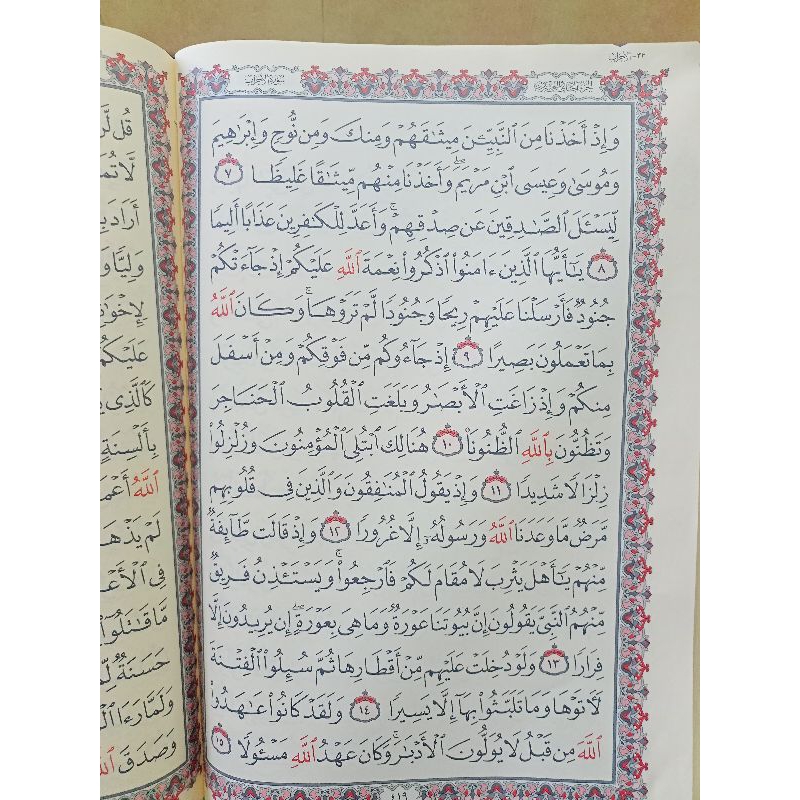 ٣٣-الأحزاب
سُورَةُ الأَحْزَابِ
الجزء الحادي والعشرون
وَإِذْ أَخَذْنَا مِنَ ٱلنَّبِيِّـۧنَ مِيثَـٰقَهُمْ وَمِنكَ وَمِن نُّوحٍ وَإِبْرَٰهِيمَ
وَمُوسَىٰ وَعِيسَى ٱبْنِ مَرْيَمَ ۖ وَأَخَذْنَا مِنْهُم مِّيثَـٰقًا غَلِيظًا ٧
لِّيَسْـَٔلَ ٱلصَّـٰدِقِينَ عَن صِدْقِهِمْ ۚ وَأَعَدَّ لِلْكَـٰفِرِينَ عَذَابًا أَلِيمًا
٨ يَـٰٓأَيُّهَا ٱلَّذِينَ ءَامَنُوا۟ ٱذْكُرُوا۟ نِعْمَةَ ٱللَّهِ عَلَيْكُمْ إِذْ جَآءَتْكُمْ
جُنُودٌ فَأَرْسَلْنَا عَلَيْهِمْ رِيحًا وَجُنُودًا لَّمْ تَرَوْهَا ۚ وَكَانَ ٱللَّهُ
بِمَا تَعْمَلُونَ بَصِيرًا ٩ إِذْ جَآءُوكُم مِّن فَوْقِكُمْ وَمِنْ أَسْفَلَ
مِنكُمْ وَإِذْ زَاغَتِ ٱلْأَبْصَـٰرُ وَبَلَغَتِ ٱلْقُلُوبُ ٱلْحَنَاجِرَ
وَتَظُنُّونَ بِٱللَّهِ ٱلظُّنُونَا۠ ١٠ هُنَالِكَ ٱبْتُلِىَ ٱلْمُؤْمِنُونَ وَزُلْزِلُوا۟
زِلْزَالًا شَدِيدًا ١١ وَإِذْ يَقُولُ ٱلْمُنَـٰفِقُونَ وَٱلَّذِينَ فِى قُلُوبِهِم
مَّرَضٌ مَّا وَعَدَنَا ٱللَّهُ وَرَسُولُهُۥٓ إِلَّا غُرُورًا ١٢ وَإِذْ قَالَت طَّآئِفَةٌ
مِّنْهُمْ يَـٰٓأَهْلَ يَثْرِبَ لَا مُقَامَ لَكُمْ فَٱرْجِعُوا۟ ۚ وَيَسْتَـْٔذِنُ فَرِيقٌ
مِّنْهُمُ ٱلنَّبِىَّ يَقُولُونَ إِنَّ بُيُوتَنَا عَوْرَةٌ وَمَا هِىَ بِعَوْرَةٍ ۖ إِن يُرِيدُونَ إِلَّا
فِرَارًا ١٣ وَلَوْ دُخِلَتْ عَلَيْهِم مِّنْ أَقْطَارِهَا ثُمَّ سُئِلُوا۟ ٱلْفِتْنَةَ
لَـَٔاتَوْهَا وَمَا تَلَبَّثُوا۟ بِهَآ إِلَّا يَسِيرًا ١٤ وَلَقَدْ كَانُوا۟ عَـٰهَدُوا۟
ٱللَّهَ مِن قَبْلُ لَا يُوَلُّونَ ٱلْأَدْبَـٰرَ ۚ وَكَانَ عَهْدُ ٱللَّهِ مَسْـُٔولًا ١٥
٤١٩
قُل لَّن
أَرَادَ
عَلَيْكُمْ
كَٱلَّذِى
بِأَلْسِنَةٍ
ٱللَّهُ
فِى
حَسَنَةٌ
وَصَدَقَ